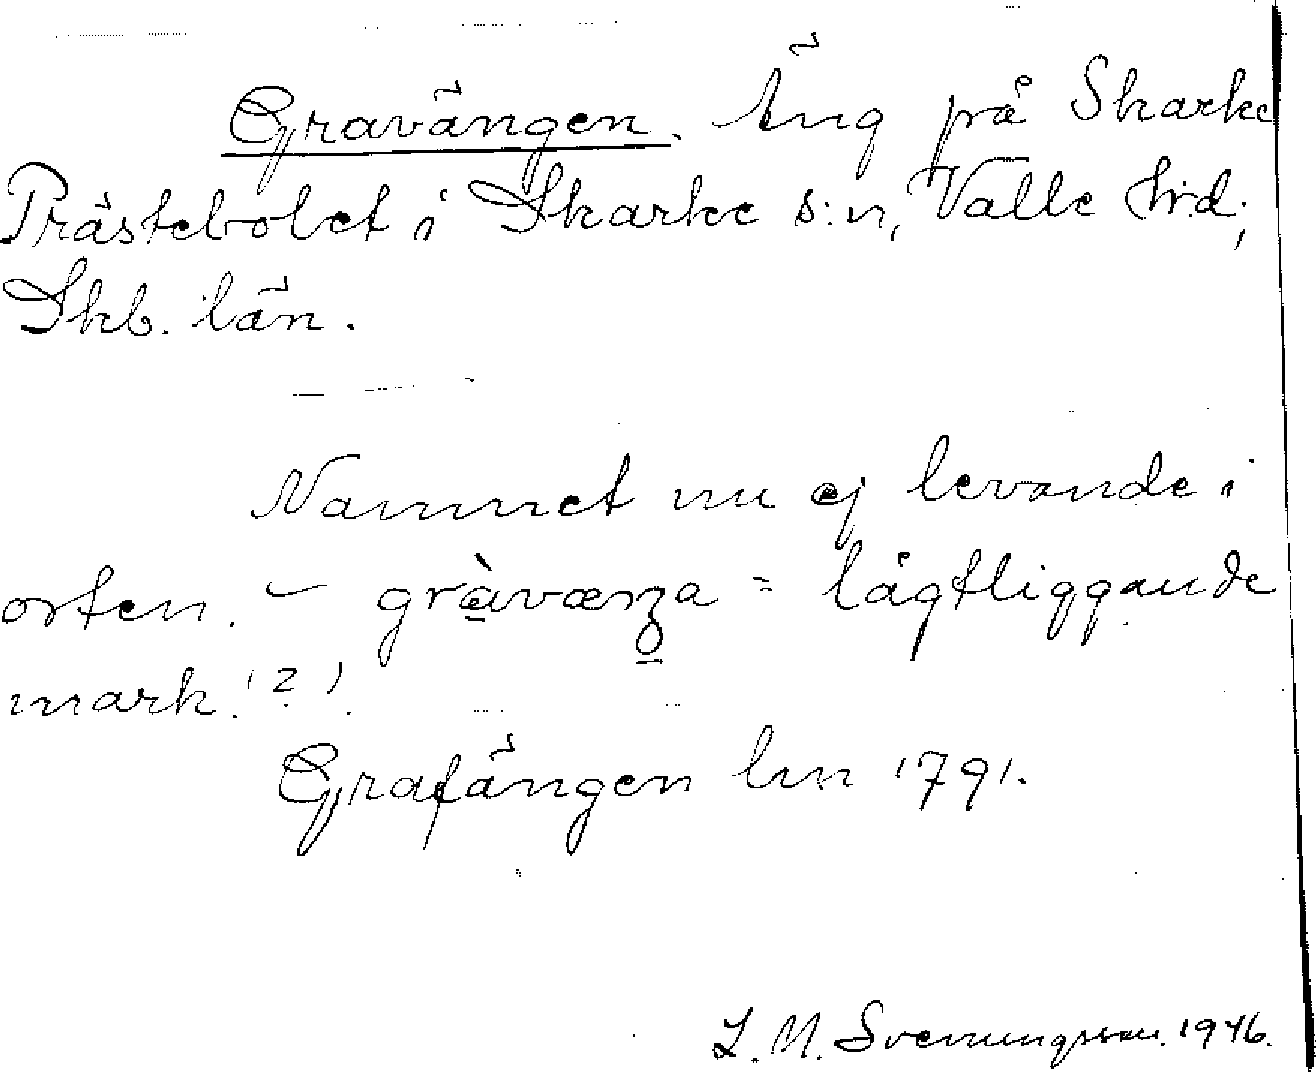 Gravängen. Äng på Skarke
Prästebolet i Skarke s:n, Valle h:d,
Skb. län.
Namnet nu ej levande i
orten. – gràvæŋa = lågtliggande
mark (?).
Grafängen lm 1791.
L. M. Svenungsson. 1946.